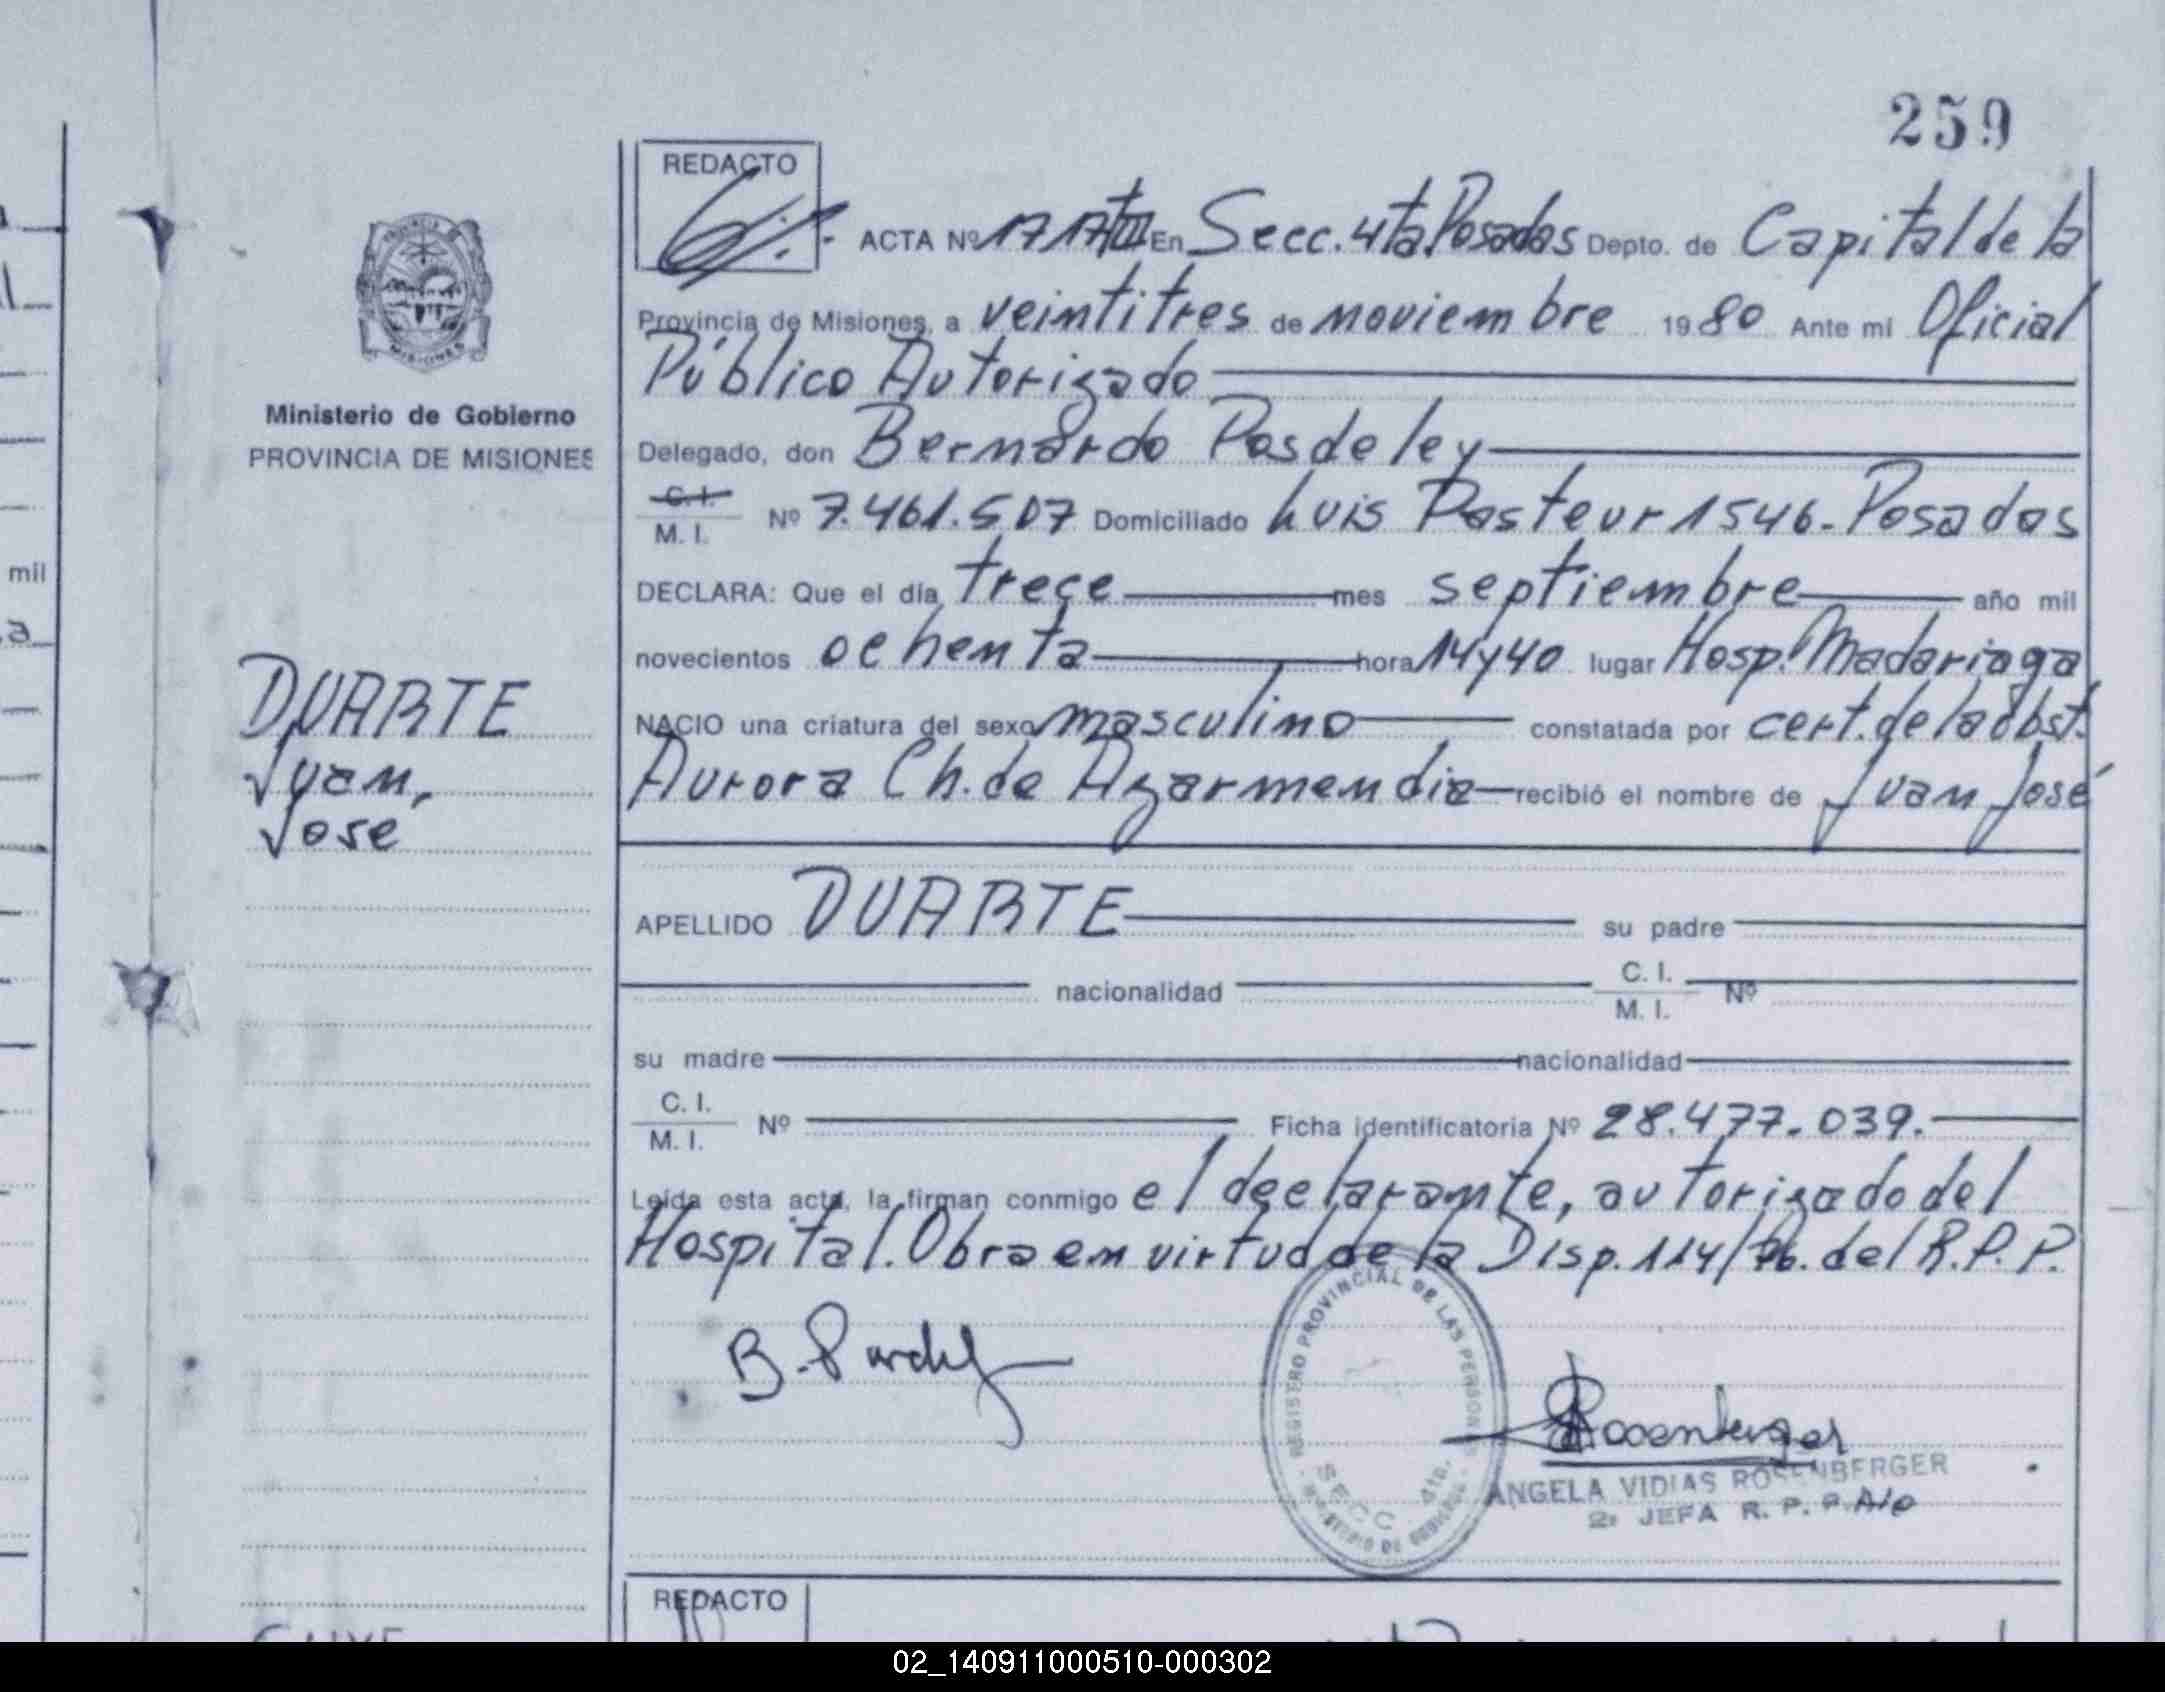 259
REDACTO
ACTA Nº 1717 tº III En Secc. 4ta. Posadas Depto. de Capital de la
Provincia de Misiones, a veintitres de noviembre 1980 Ante mi Oficial
Público Autorizado
Ministerio de Gobierno
PROVINCIA DE MISIONES
Delegado, don Bernardo Pasdeley
C. I.
M. I. Nº 7.461.507 Domiciliado Luis Pasteur 1546.- Posadas
DECLARA: Que el día trece mes septiembre año mil
novecientos ochenta hora 14y40 lugar Hosp. Madariaga
NACIO una criatura del sexo masculino constatada por cert. de la obst.
Aurora Ch. de Azarmendia recibió el nombre de Juan José
DUARTE
Juan,
Jose
APELLIDO DUARTE su padre
nacionalidad C. I.
M. I. Nº
su madre nacionalidad
C. I.
M. I. Nº Ficha identificatoria Nº 28.477.039.
Leída esta acta, la firman conmigo el declarante, autorizado del
Hospital. Obra en virtud de la Disp. 114/76. del R.P.P.
REGISTRO PROVINCIAL DE LAS PERSONAS
SECC. 4ta.
MINISTERIO DE GOBIERNO
Rosenberger
ANGELA VIDIAS ROSENBERGER
2º JEFA R. P. P. A/c
REDACTO
mil
02_140911000510-000302